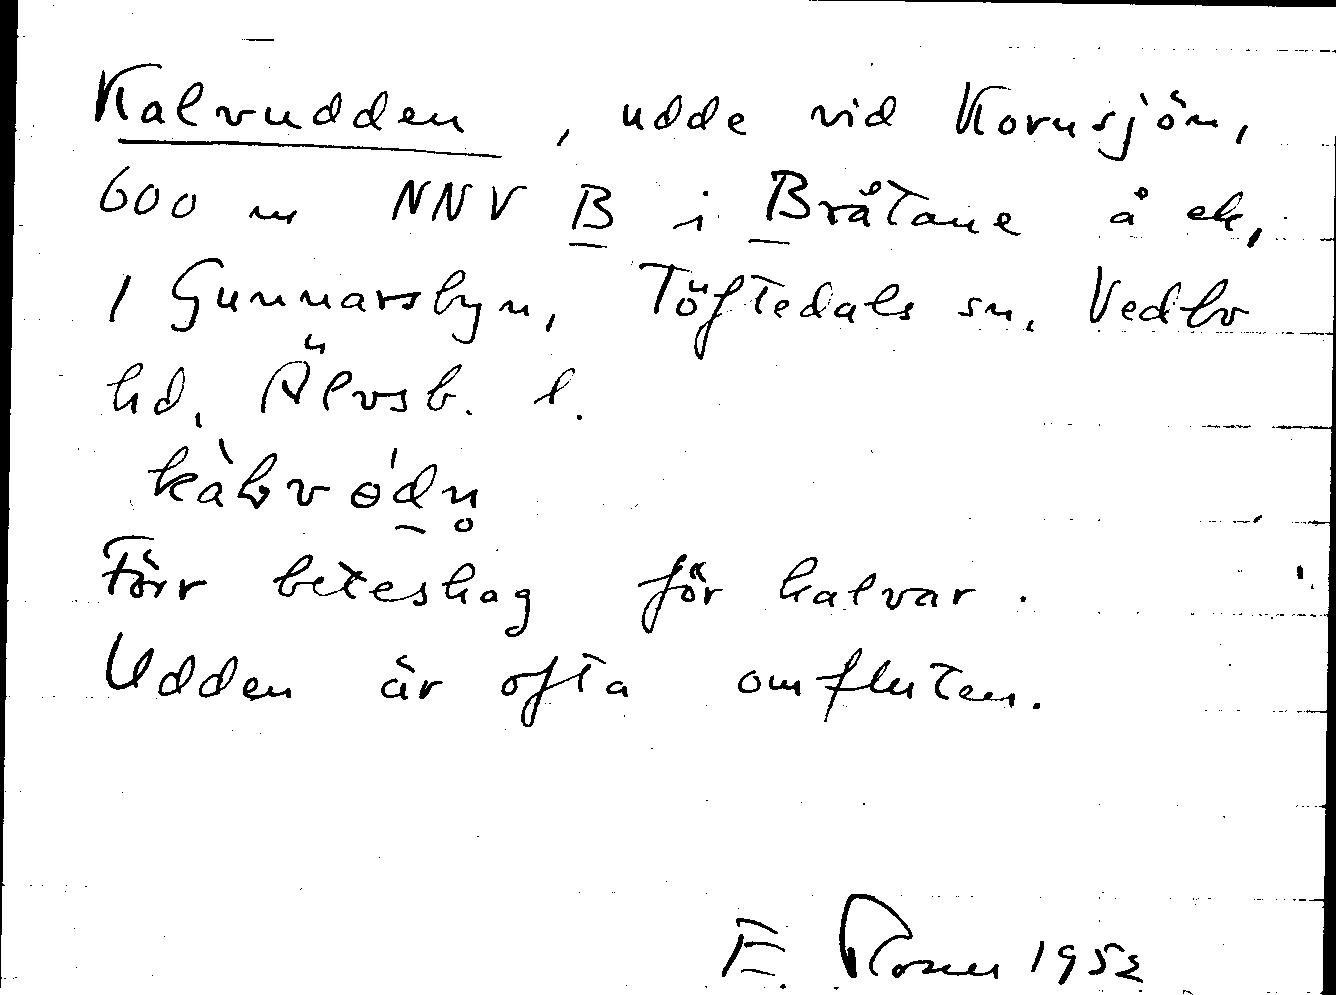 Kalvudden, udde vid Kornsjön,
600 m NNV B i Bråtane å ek,
1 Gunnarsbyn, Töftedals sn. Vedbo
hd. Älvsb. l.
Förr beteshag för kalvar.
Udden är ofta omfluten.
E. 1952